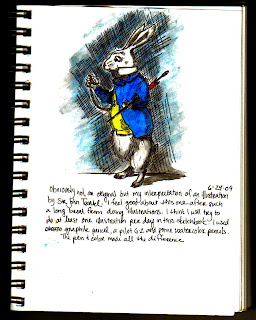 6-29-09
Obviously not an original but my interpretation of an illustration
by Sir John Tenniel. I feel good about this one after such
a long break from doing illustrations. I think I will try to
do at least one illustration per day in this sketchbook. I used
graphite pencil, a pilot G-2 and prime watercolor pencils.
The pen & color made all the difference.